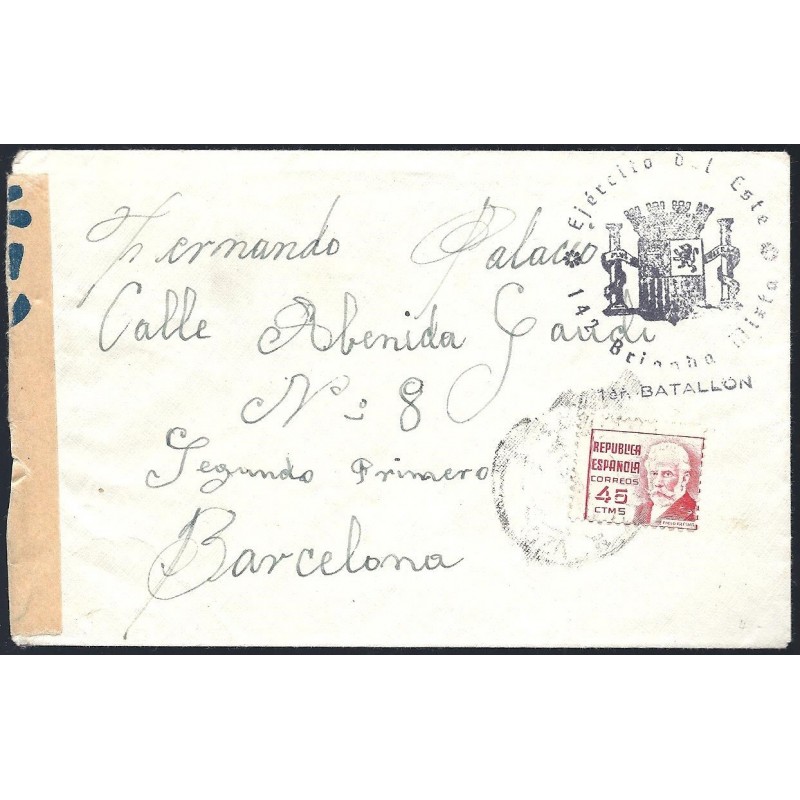 Ejército Del Este
143 Brigada Mixta
1er. BATALLON
Fernando Palacio
Calle Abenida Gaudi
No 8
Segundo Primero
Barcelona
REPUBLICA
ESPAÑOLA
CORREOS
45
CTMS